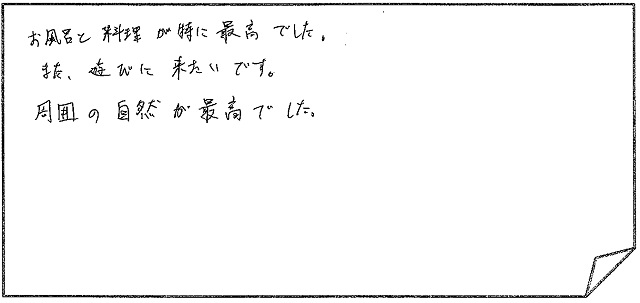 お風呂と料理が特に最高でした。
また、遊びに来たいです。
周囲の自然が最高でした。